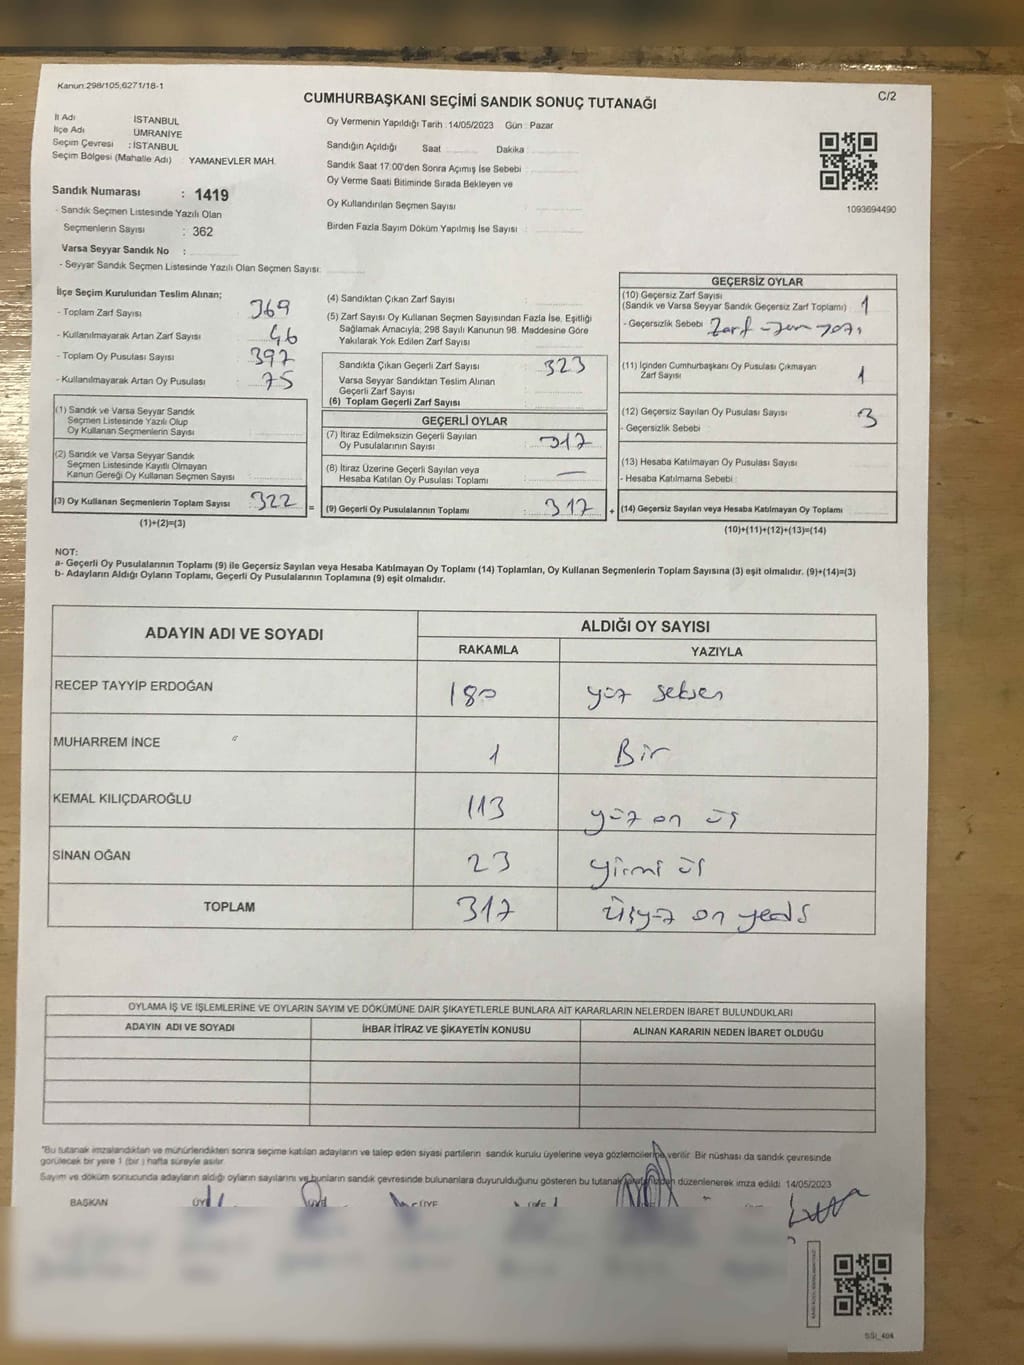 Kanun:298/105,6271/18-1
C/2
CUMHURBAŞKANI SEÇİMİ SANDIK SONUÇ TUTANAĞI
İl Adı İSTANBUL
İlçe Adı ÜMRANİYE
Seçim Çevresi : İSTANBUL
Seçim Bölgesi (Mahalle Adı) YAMANEVLER MAH.
Sandık Numarası : 1419
- Sandık Seçmen Listesinde Yazılı Olan
Seçmenlerin Sayısı : 362
Varsa Seyyar Sandık No :
- Seyyar Sandık Seçmen Listesinde Yazılı Olan Seçmen Sayısı:
Oy Vermenin Yapıldığı Tarih : 14/05/2023 Gün : Pazar
Sandığın Açıldığı Saat Dakika
Sandık Saat 17:00'den Sonra Açımış İse Sebebi
Oy Verme Saati Bitiminde Sırada Bekleyen ve
Oy Kullandırılan Seçmen Sayısı
Birden Fazla Sayım Döküm Yapılmış İse Sayısı
1093694490
İlçe Seçim Kurulundan Teslim Alınan;
- Toplam Zarf Sayısı 369
- Kullanılmayarak Artan Zarf Sayısı 46
- Toplam Oy Pusulası Sayısı 397
- Kullanılmayarak Artan Oy Pusulası 75
(1) Sandık ve Varsa Seyyar Sandık
Seçmen Listesinde Yazılı Olup
Oy Kullanan Seçmenlerin Sayısı
(2) Sandık ve Varsa Seyyar Sandık
Seçmen Listesinde Kayıtlı Olmayan
Kanun Gereği Oy Kullanan Seçmen Sayısı
(3) Oy Kullanan Seçmenlerin Toplam Sayısı : 322
(1)+(2)=(3)
(4) Sandıktan Çıkan Zarf Sayısı
(5) Zarf Sayısı Oy Kullanan Seçmen Sayısından Fazla İse, Eşitliği
Sağlamak Amacıyla; 298 Sayılı Kanunun 98. Maddesine Göre
Yakılarak Yok Edilen Zarf Sayısı
Sandıkta Çıkan Geçerli Zarf Sayısı 323
Varsa Seyyar Sandıktan Teslim Alınan
Geçerli Zarf Sayısı
(6) Toplam Geçerli Zarf Sayısı
GEÇERLİ OYLAR
(7) İtiraz Edilmeksizin Geçerli Sayılan
Oy Pusulalarının Sayısı 317
(8) İtiraz Üzerine Geçerli Sayılan veya
Hesaba Katılan Oy Pusulası Toplamı —
=
(9) Geçerli Oy Pusulalarının Toplamı : 317
+
GEÇERSİZ OYLAR
(10) Geçersiz Zarf Sayısı
(Sandık ve Varsa Seyyar Sandık Geçersiz Zarf Toplamı) 1
- Geçersizlik Sebebi Zarf
(11) İçinden Cumhurbaşkanı Oy Pusulası Çıkmayan
Zarf Sayısı 1
(12) Geçersiz Sayılan Oy Pusulası Sayısı 3
- Geçersizlik Sebebi
(13) Hesaba Katılmayan Oy Pusulası Sayısı
- Hesaba Katılmama Sebebi
(14) Geçersiz Sayılan veya Hesaba Katılmayan Oy Toplamı
(10)+(11)+(12)+(13)=(14)
NOT:
a- Geçerli Oy Pusulalarının Toplamı (9) ile Geçersiz Sayılan veya Hesaba Katılmayan Oy Toplamı (14) Toplamları, Oy Kullanan Seçmenlerin Toplam Sayısına (3) eşit olmalıdır. (9)+(14)=(3)
b- Adayların Aldığı Oyların Toplamı, Geçerli Oy Pusulalarının Toplamına (9) eşit olmalıdır.
ADAYIN ADI VE SOYADI
ALDIĞI OY SAYISI
RAKAMLA
YAZIYLA
RECEP TAYYİP ERDOĞAN 180 yüz seksen
MUHARREM İNCE 1 Bir
KEMAL KILIÇDAROĞLU 113 yüz on üç
SİNAN OĞAN 23 yirmi üç
TOPLAM 317 Üçyüz on yedi
OYLAMA İŞ VE İŞLEMLERİNE VE OYLARIN SAYIM VE DÖKÜMÜNE DAİR ŞİKAYETLERLE BUNLARA AİT KARARLARIN NELERDEN İBARET BULUNDUKLARI
ADAYIN ADI VE SOYADI
İHBAR İTİRAZ VE ŞİKAYETİN KONUSU
ALINAN KARARIN NEDEN İBARET OLDUĞU
*Bu tutanak imzalandıktan ve mühürlendikten sonra seçime katılan adayların ve talep eden siyasi partilerin sandık kurulu üyelerine veya gözlemcilerine verilir. Bir nüshası da sandık çevresinde
görülecek bir yere 1 (bir ) hafta süreyle asılır.
Sayım ve döküm sonucunda adayların aldığı oyların sayılarını ve bunların sandık çevresinde bulunanlara duyurulduğunu gösteren bu tutanak düzenlenerek imza edildi. 14/05/2023
BAŞKAN
SSI_404